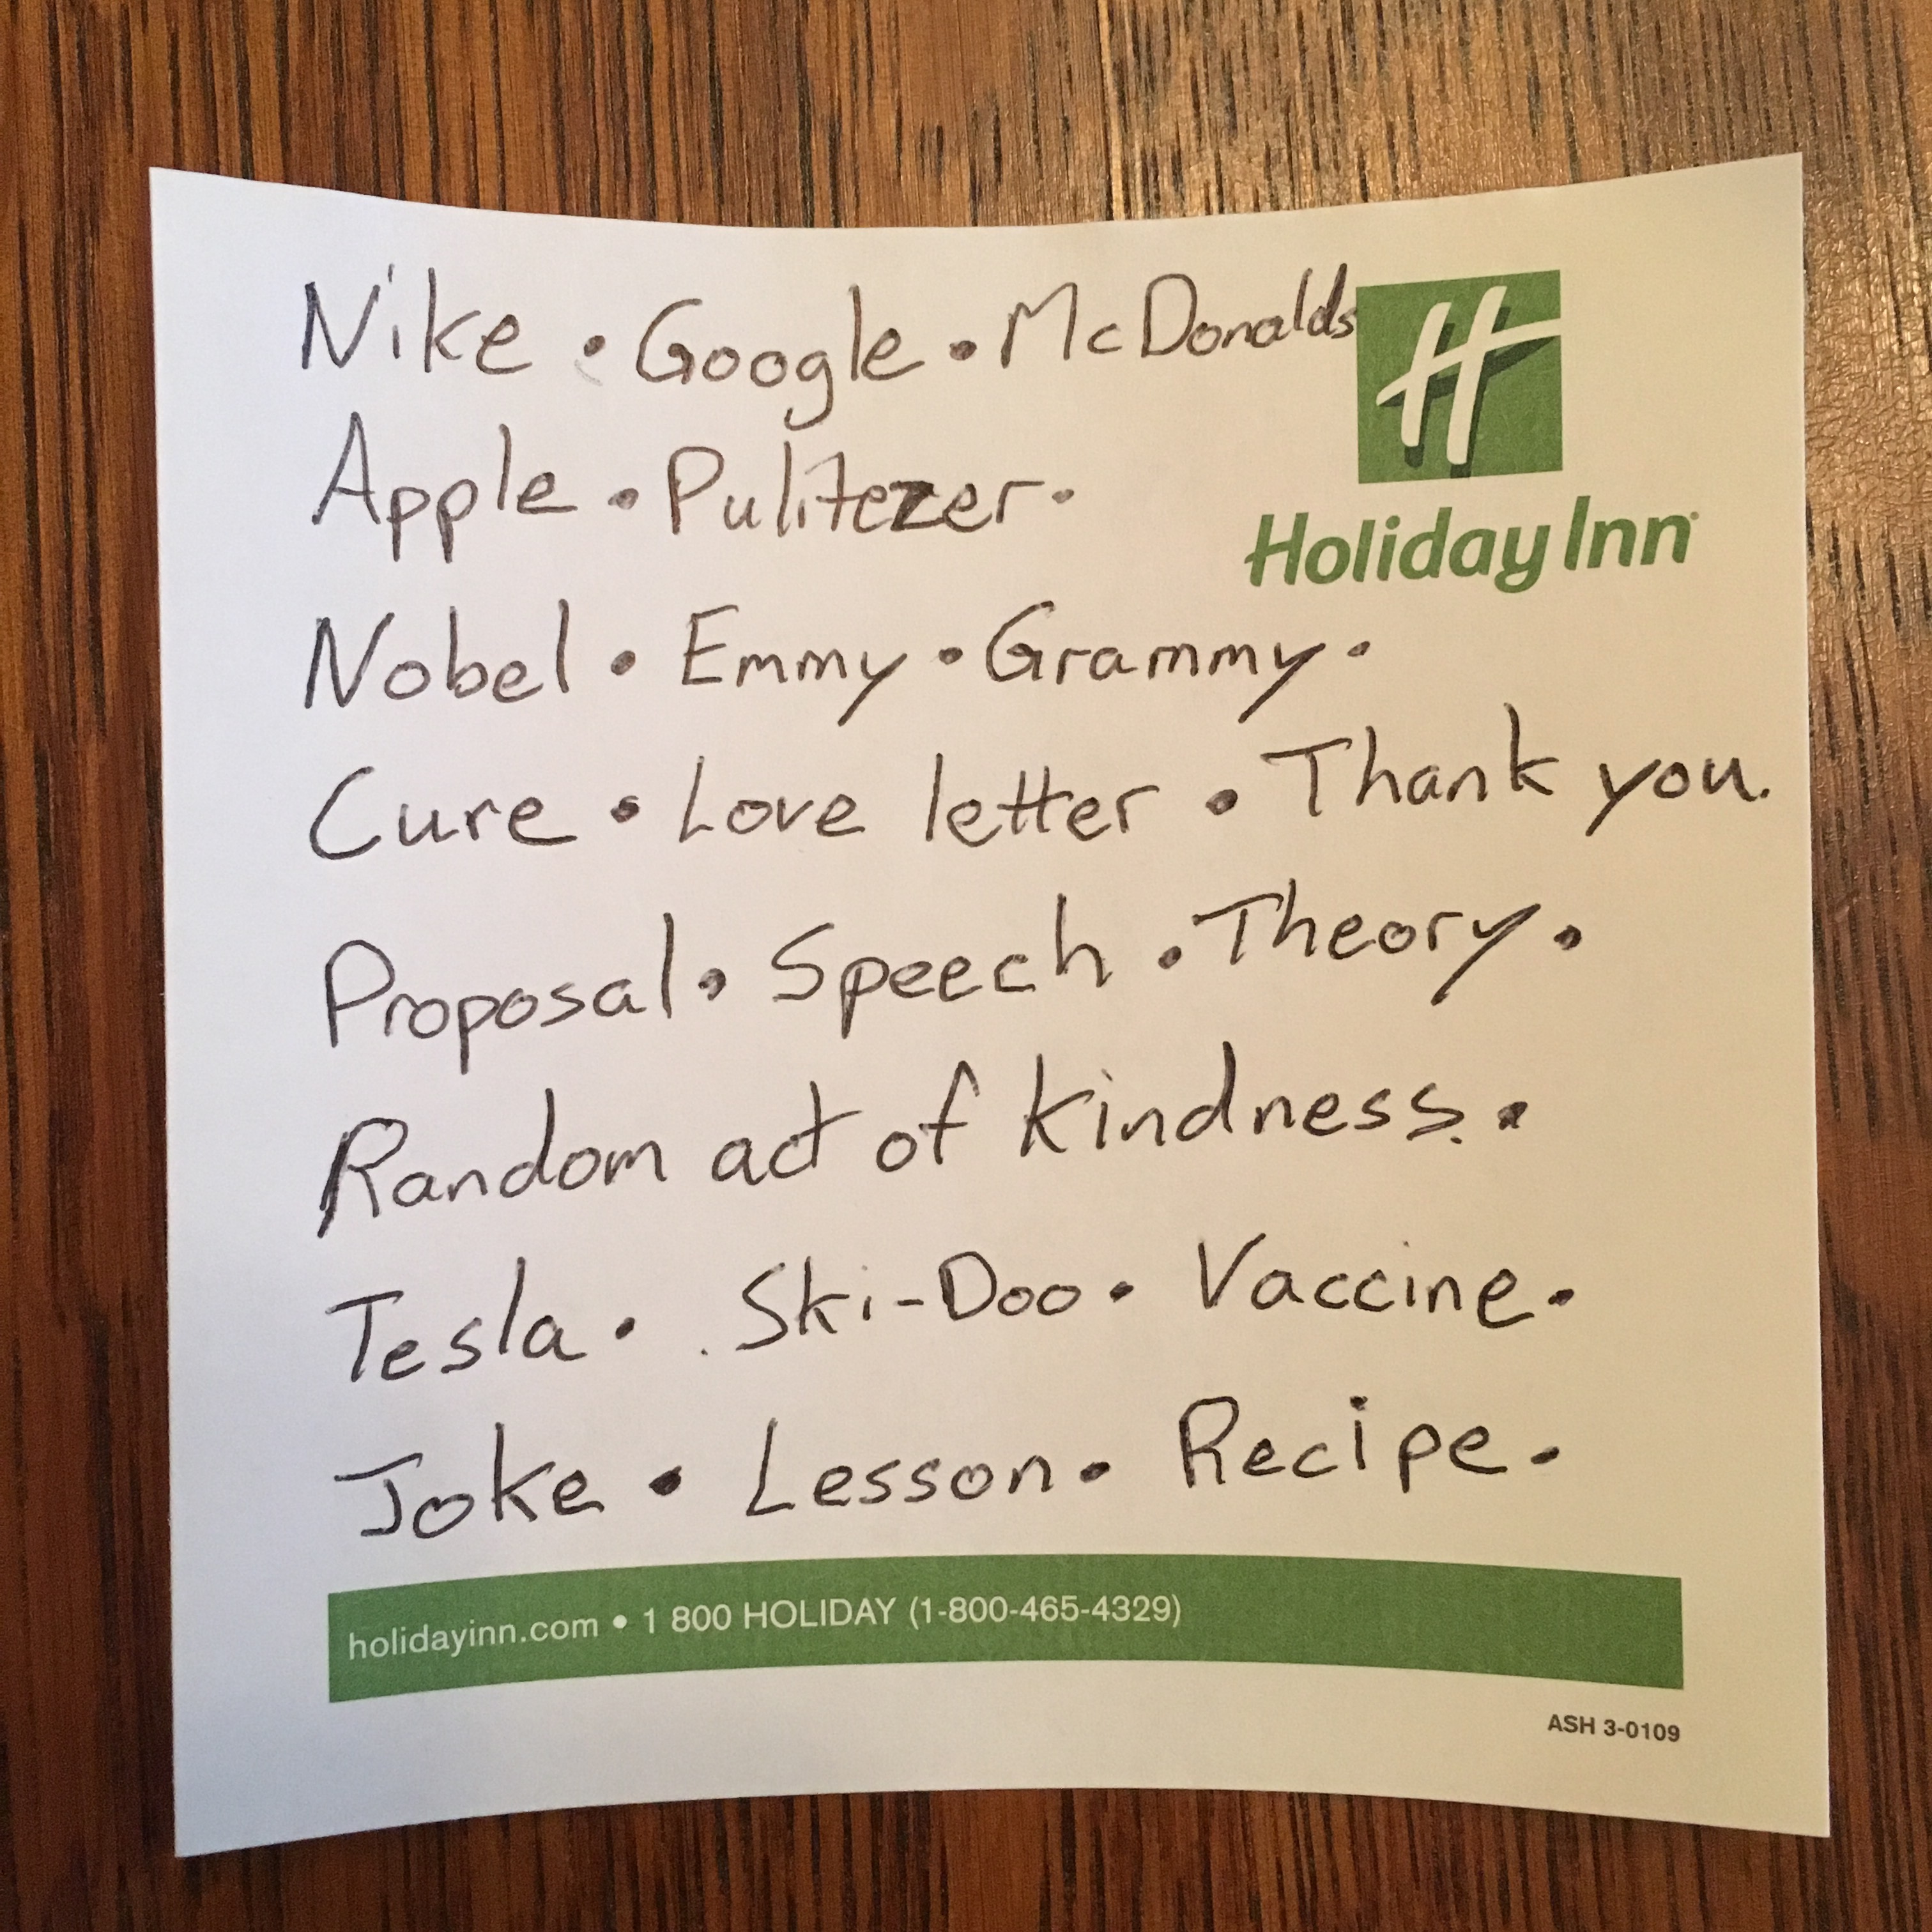 Nike • Google • McDonalds
Apple • Pulitezer •
Holiday Inn
Nobel • Emmy • Grammy •
Cure • Love letter • Thank you.
Proposal • Speech • Theory •
Random act of kindness. •
Tesla • Ski-Doo • Vaccine •
Joke • Lesson • Recipe •
holidayinn.com • 1 800 HOLIDAY (1-800-465-4329)
ASH 3-0109